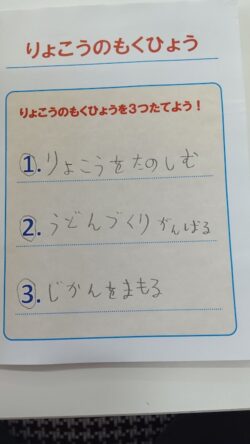 りょこうのもくひょう
りょこうのもくひょうを3つたてよう!
1. りょこうをたのしむ
2. うどんづくりがんばる
3. じかんをまもる